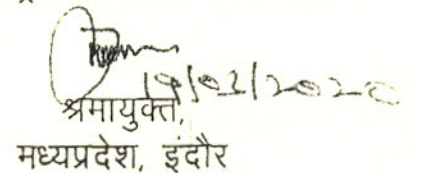 19/02/2020
श्रमायुक्त,
मध्यप्रदेश, इंदौर